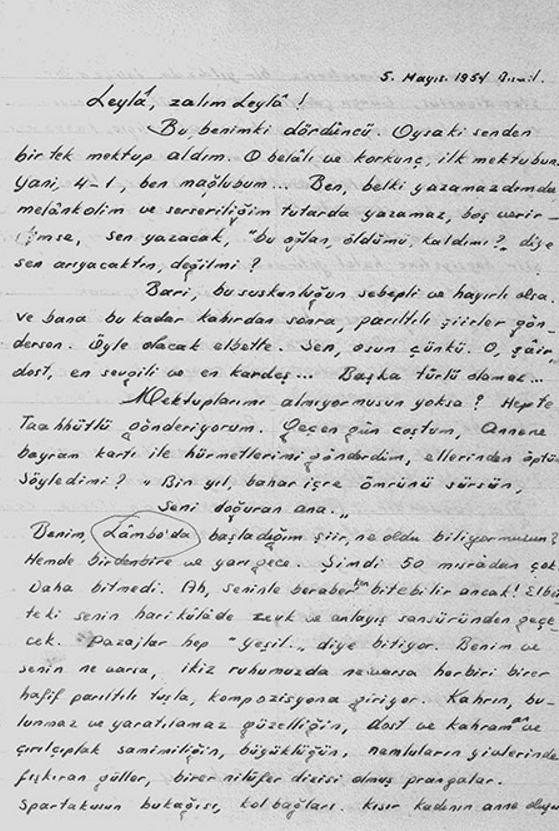 5. Mayıs. 1954 Bismil.
Leylâ, zalım Leylâ !
Bu benimki dördüncü. Oysaki senden
bir tek mektup aldım. O belâlı ve korkunç, ilk mektubun.
Yani, 4-1, ben mağlubum... Ben, belki yazamazdımda
melânkolim ve serseriliğim tutarda yazamaz, boş verir-
dimse, sen yazacak, "bu oğlan, öldümü kaldımı?" diye
sen arıyacaktın, değilmi ?
Bari, bu suskunluğun sebepli ve hayırlı olsa.
ve bana bu kadar kahırdan sonra, parıltılı şiirler gön_
dersen. Öyle olacak elbette. Sen, osun çünkü. O, şâir,
dost, en sevgili ve en kardeş... Başka türlü olamaz...
Mektuplarımı almıyormusun yoksa ? Hepte
Taahhütlü gönderiyorum. Geçen gün coştum, Annene
bayram kartı ile hürmetlerimi gönderdim, ellerinden öptü
Söyledimi ? "Bin yıl, bahar içre ömrünü sürsün,
Seni doğuran ana."
Benim, Lâmbo'da başladığım şiir, ne oldu biliyormusun?
Hemde birdenbire ve yarı gece. Şimdi 50 mısradan çok.
Daha bitmedi. Ah, seninle beraberken bitebilir ancak! Elbet
teki senin harikülâde zevk ve anlayış sansüründen geçe
cek. Pazajlar hep "Yeşil.." diye bitiyor. Benim ve
senin ne varsa, ikiz ruhumuzda ne varsa herbiri birer
hafif parıltılı tuşla, kompozisyona giriyor. Kahrın, bu-
lunmaz ve yaratılamaz güzelliğin, dost ve kahraman ve
çırılçıplak samimiliğin, büyüklüğün, namluların yivlerinde
fışkıran güller, birer nilüfer dizisi olmuş prangalar.
Spartaküsun bukağısı, kol bağları. Kısır kadının anne oluşu